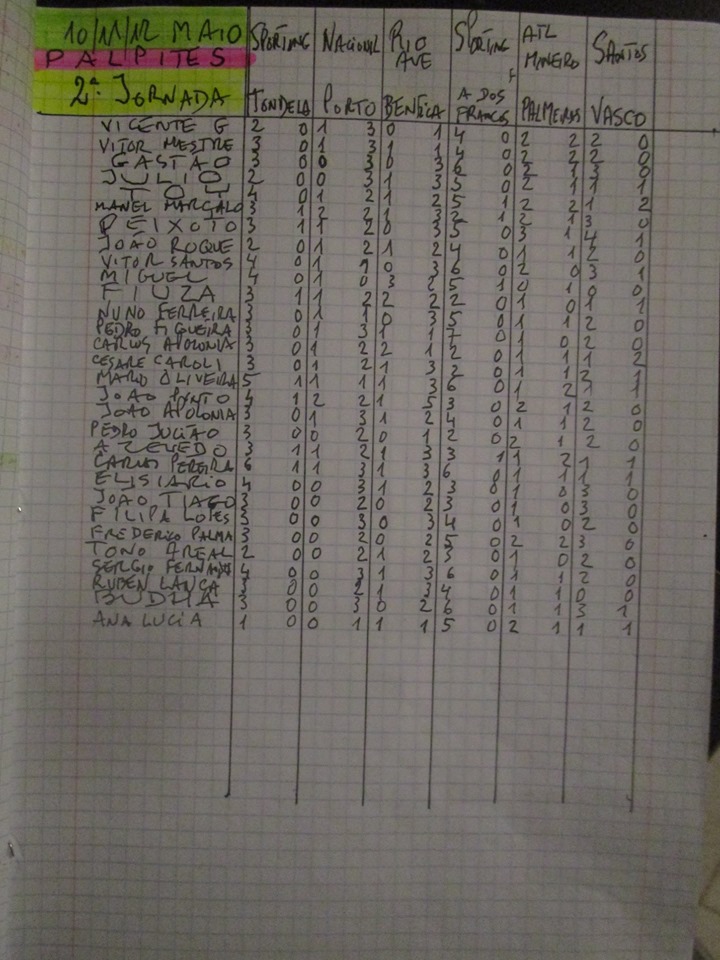 10/11/12 MAIO SPORTING NACIONAL RIO AVE SPORTING F ATL MINEIRO SANTOS
PALPITES
2ª JORNADA TONDELA PORTO BENFICA A DOS FRANCOS PALMEIRAS VASCO
VICENTE G 2 0 1 3 0 1 4 0 2 2 2 0
VITOR MESTRE 3 0 1 3 1 1 4 0 2 2 2 0
GASTÃO 3 0 0 3 0 3 6 0
JULIO 2 0 0 3 1 3 5 0 2 1 1 1
TOY 4 0 1 2 1 2 5
MANEL MARÇALO 3 1 2 2 1 3 2
PEIXOTO 3 1 1 2 0 3 5 0
JOÃO ROQUE 2 0 1 2 1 2 4 0
VITOR SANTOS 4 0 1 1 0 3 6 0 2 0 3 1
MIGUEL 4 0 1 0 3 2 5 1 0 1 0 0
FIUZA 3 1 1 2 2 2 2 0 1 0 1 1
NUNO FERREIRA 3 0 1 1 0 3 5 0 1 1 2 0
PEDRO FIGUEIRA 3 0 1 3 1 1
CARLOS APOLONIA 3 0 1 2 2 1 2 0 1
CESARE CAROLI 3 0 1 2 1 3 2 0 1
MARIO OLIVEIRA 5 1 1 1 1 3 6 0 1 2 1 1
JOÃO PINTO 4 1 2 2 1 5 3 0 2 1 2 0
JOÃO APOLONIA 3 0 1 3 1 2 4 0 1 1 2 0
PEDRO JULIÃO 3 0 0 2 0 1 2 0 2 1 2 0
AZEVEDO 3 1 1 2 1 3 3 1 1 2 1 1
CARLOS PEREIRA 6 1 1 3 1 3 6 0 1 1 1 1
ELISIARIO 4 0 0 3 1 2 3 0 1 0 3 0
JOÃO TIAGO 3 0 0 2 0 2 3 0 1 0 3 0
FILIPA LOPES 3 0 0 3 0 3 4 0 1 0 2 0
FREDERICO PALMA 3 0 0 2 0 2 5 0 2 2 3 0
TONO AREAL 2 0 0 2 1 2 3 0 1 0 2 0
SERGIO FERNANDES 4 0 0 3 1 3 6 0 1 1 2 0
RUBEN LANÇA 3 0 0 2 1 3 4 0 1 1 0 0
BUDHA 3 0 0 3 0 2 6 0 1 1 3 1
ANA LUCIA 1 0 0 1 1 1 5 0 2 1 1 1